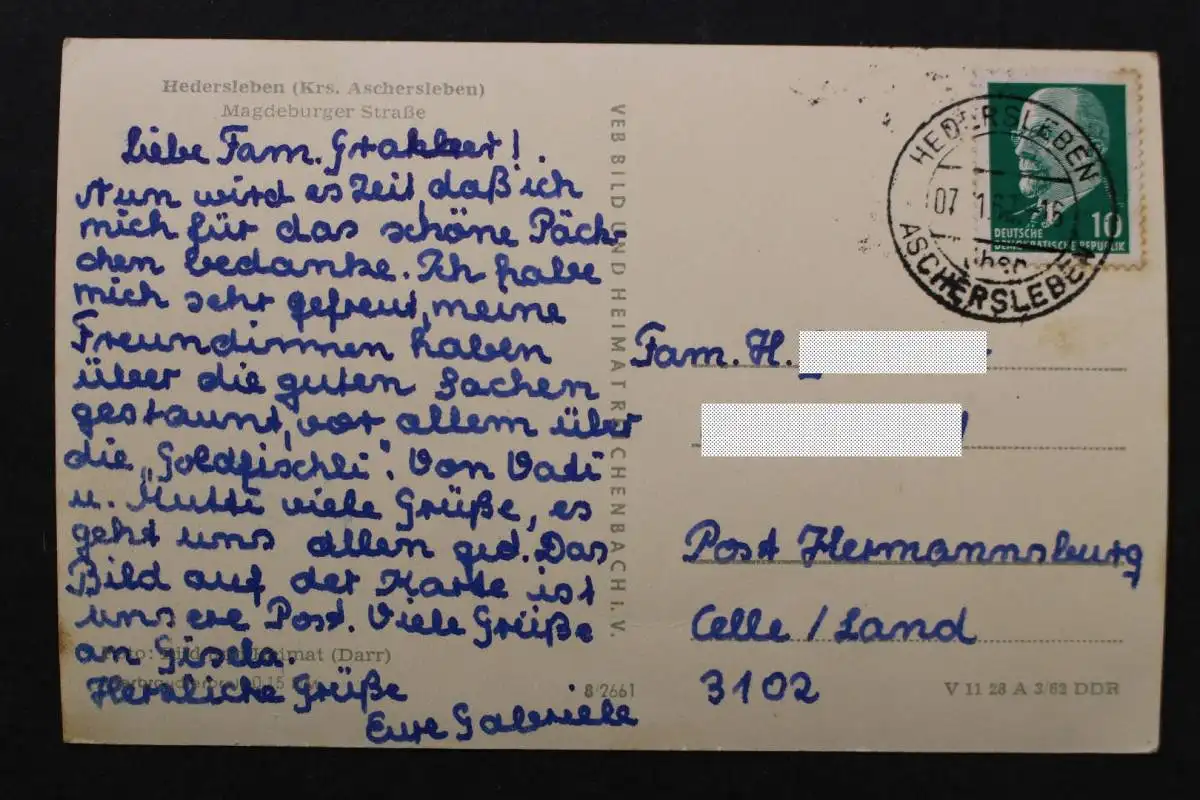 Hedersleben (Krs. Aschersleben)
Magdeburger Straße
Liebe Fam.
Nun wird es Zeit, daß ich
mich für das schöne Päck-
chen bedanke. Ich habe
mich sehr gefreut, meine
Freundinnen haben
über die guten Sachen
gestaunt, vor allem über
die „Goldfischli“. Von Vati
u. Mutti viele Grüße, es
geht uns allen gut. Das
Bild auf der Karte ist
unsere Post. Viele Grüße
an Gisela.
Herzliche Grüße
Eure Gabriele
Foto: Bild und Heimat (Darr)
8/2661
VEB BILD UND HEIMAT REICHENBACH i. V.
HEDERSLEBEN
07
16
über
ASCHERSLEBEN
10
DEUTSCHE
DEMOKRATISCHE REPUBLIK
Fam. H.
Post Hermannsburg
Celle / Land
3102
V 11 28 A 3/62 DDR